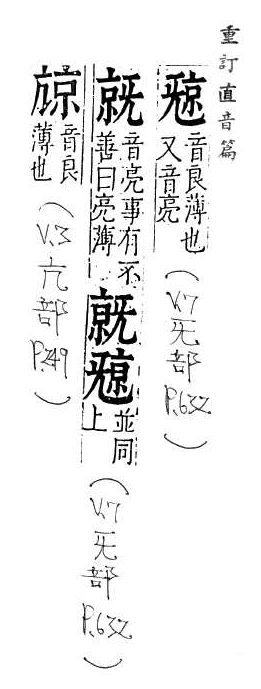 重訂直音篇
音良薄也
又音亮
(V.7 旡部 P.632)
音亮事有不
善曰亮薄
並同
上
(V.7 旡部 P.632)
音良
薄也
(V.3 亢部 P.249)